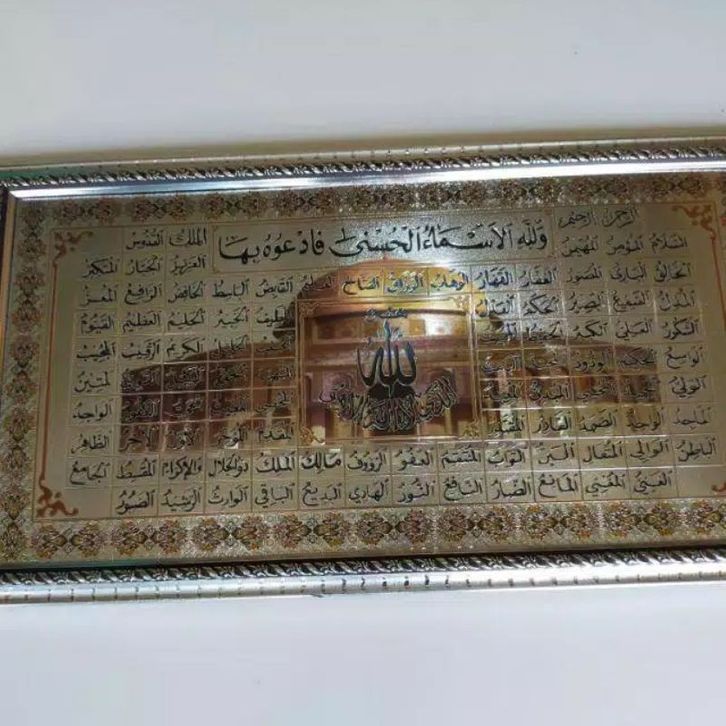 الرحمن الرحيم
ولله الأسماء الحسنى فادعوه بها
الملك القدوس
السلام المؤمن المهيمن
العزيز الجبار المتكبر
الخالق البارئ المصور الغفار القهار الوهاب الرزاق الفتاح العليم القابض الباسط الخافض الرافع المعز
المذل السميع البصير الحكم العدل اللطيف الخبير الحليم العظيم
الشكور العلي الكبير الحفيظ المقيت الجليل الكريم الرقيب المجيب
الله
الواسع الحكيم الودود القوي المتين
الولي المحصي المبدئ المعيد الواجد
الماجد الواحد الصمد القادر المقتدر المقدم المؤخر الأول الآخر الظاهر
الباطن الوالي المتعال البر التواب المنتقم العفو الرؤوف مالك الملك ذو الجلال والإكرام المقسط الجامع
الغني المغني المانع الضار النافع النور الهادي البديع الباقي الوارث الرشيد الصبور